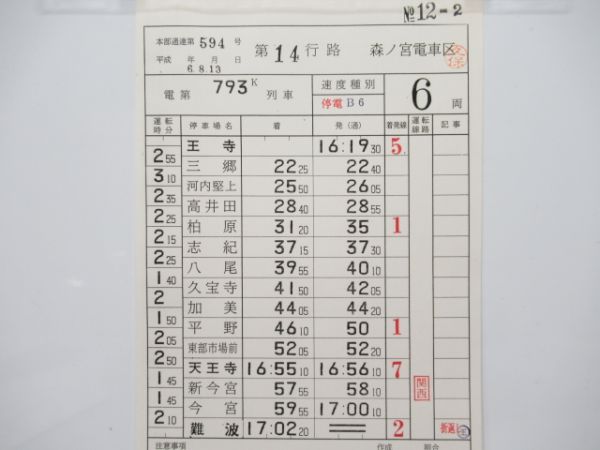 №12-2
本部通達第 594 号
平成 年 月 日
6.8.13
第 14 行路 森ノ宮電車区
電第 793K 列車
速度種別
停電B6
6 両
運転時分 停車場名 着 発(通) 着発線 運転線路 記事
王寺 16:19 30 5
2 55
三郷 22 25 22 40
3 10
河内堅上 25 50 26 05
2 35
高井田 28 40 28 55
2 25
柏原 31 20 35 1
2 15
志紀 37 15 37 30
2 25
八尾 39 55 40 10
1 40
久宝寺 41 50 42 05
2
加美 44 05 44 20
1 50
平野 46 10 50 1
2 05
東部市場前 52 05 52 20
2 50
天王寺 16:55 10 16:56 10 7
関西
1 45
新今宮 57 55 58 10
1 45
今宮 59 55 17:00 10
2 10
難波 17:02 20 2
注意事項 作成